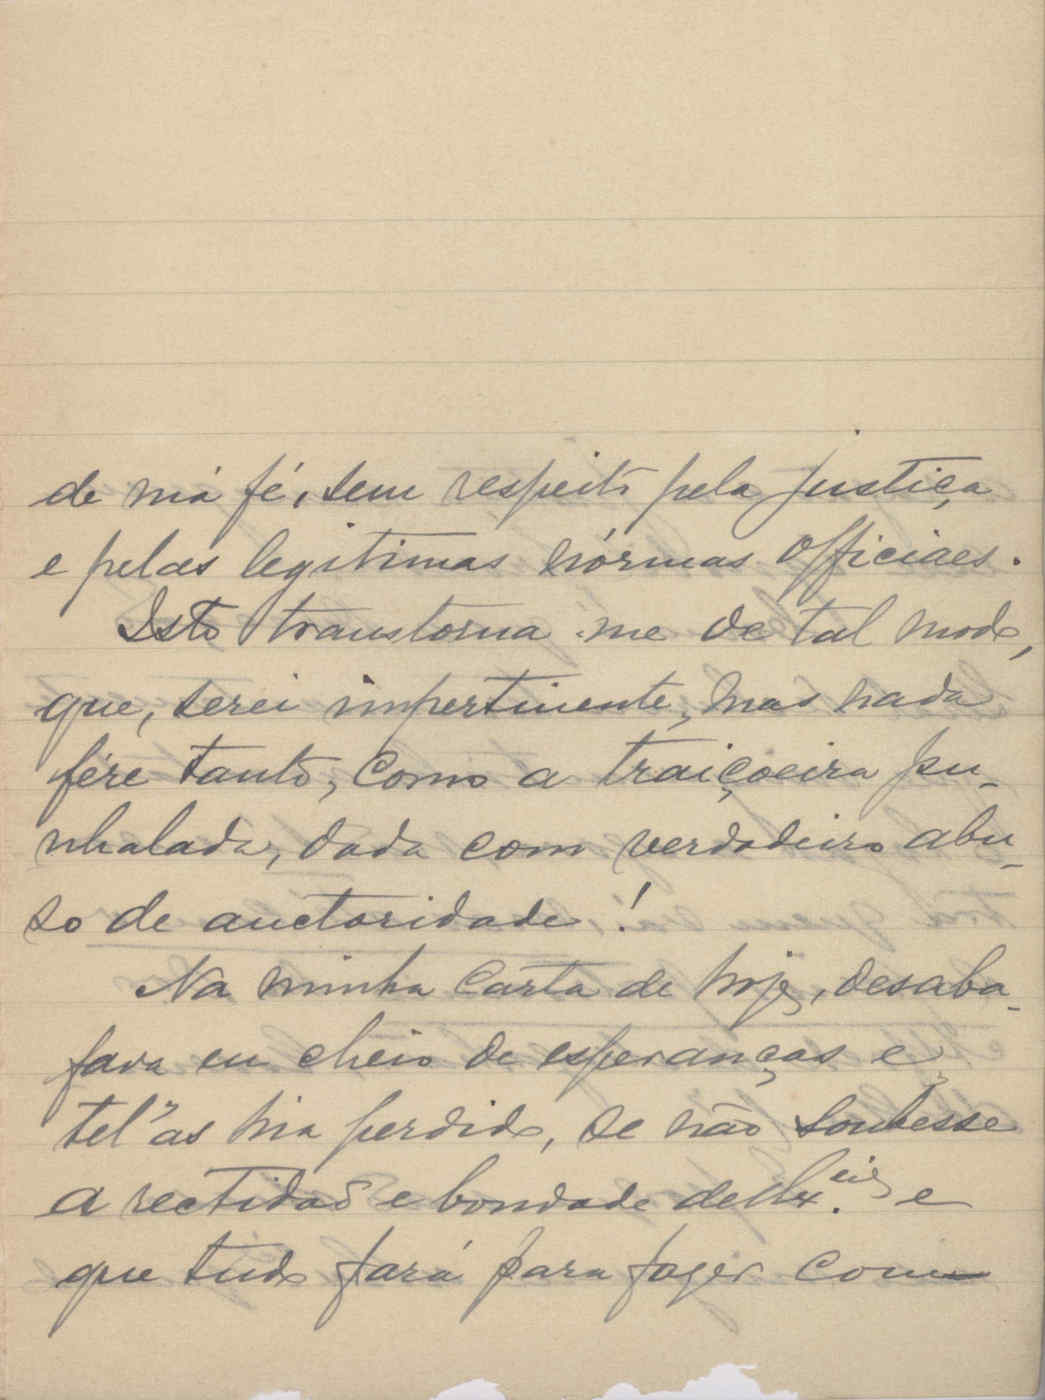 de má fé, sem respeito pela justiça
e pelas legitimas nórmas officiaes.
Isto transtorna-me de tal modo,
que, serei impertinente, mas nada
fére tanto, como a traiçoeira pu-
nhalada, dada com verdadeiro abu-
so de auctoridade!
Na minha carta de hoje, desaba-
fava eu cheio de esperanças e
tel-as hia perdido, se não soubesse
a rectidão e bondade de V. Ex.cia e
que tudo fará para fazer com